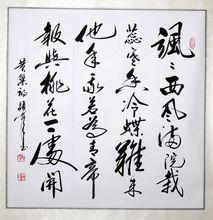 颯々西风满院栽
蕊寒香冷蝶難来
他年我若為青帝
報與桃花一處開
黄巢詩